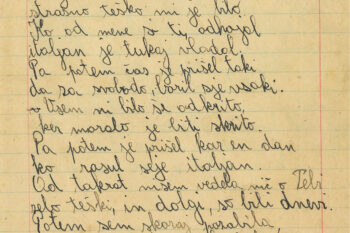 strašno teško mi je bilo.
Ko, od mene si ti odhajal
italjan je tukaj vladal.
Pa potem čas je prišel taki
da za svobodo, boril sje vsaki.
v tsem ni bilo še odkrito,
ker moralo je biti skrito.
Pa potem je prišel kar en dan
ko rasul sije italjan.
Od takrat nisem vedela nič o Tebi
zelo teški, in dolgi, so bili dnevi.
Potem sem skoraj pozabila,